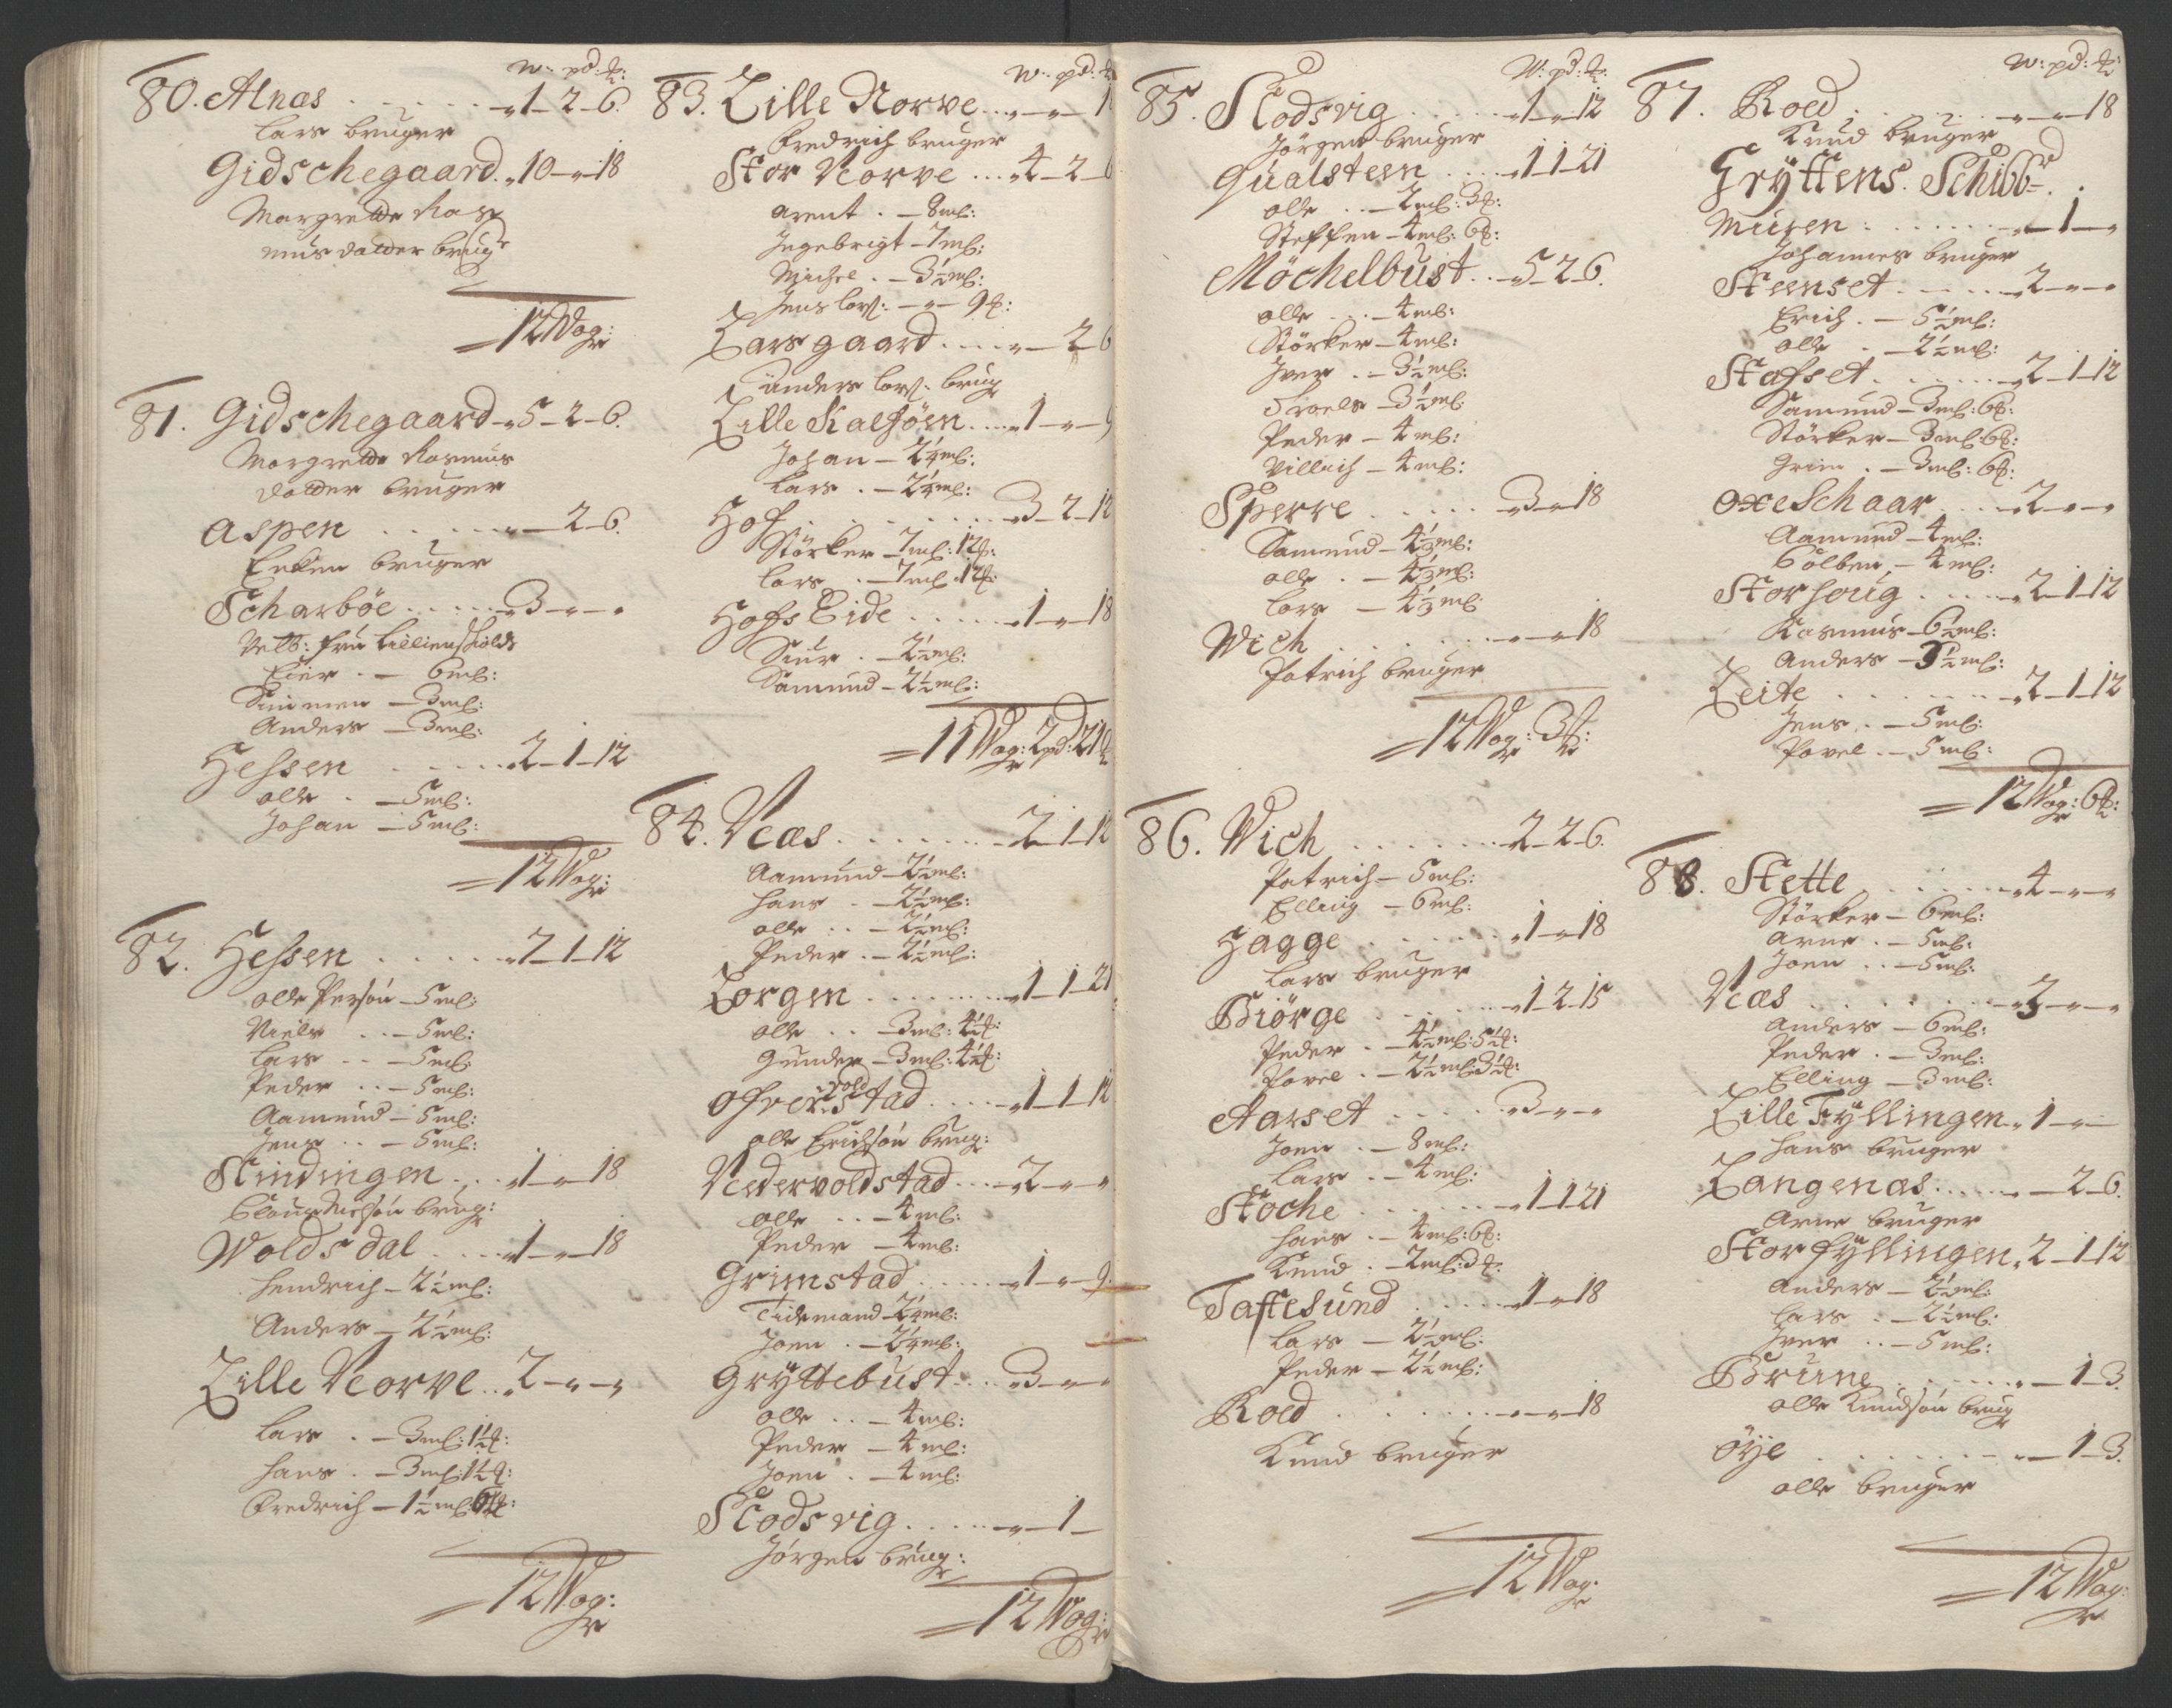 W: pd: ℔:
80. Alnæs . . . . . „1–2–6.
Lars bruger
Gidschegaard. „10–„–18
Margrette Ras„
mus datter brugr
= 12 Wog:
81. Gidschegaard „5–2–6.
Margrette Rasmus
datter bruger
Aspen . . . . . „–2–6.
Enken bruger
Scharbøe . . . . . „3–„–„
Velb: frue Lillienschiolds
Eier . – 6ml:
Simmen – 3ml:
Anders – 3ml:
Hessen . . . . . „2–1–12
Olle . – 5ml:
Johan – 5ml:
= 12 Wog:
82. Hessen . . . . . „7–1–12
Olle Persøn – 5ml:
Niels . . – 5ml:
Lars . . – 5ml:
Peder . . – 5ml:
Aamund – 5ml:
Jens . . – 5ml:
Slindingen . . . „1–„–18
Claus Nielsøn brug:
Woldsdal . . . . „1–„–18
Hendrich – 2½ml:
Anders – 2½ml:
Lille Norve . . „2–„–„
Lars . – 3ml: 1½℔:
Hans . – 3ml: 1½℔:
Fredrich – 1½ml
= 12 Wog:
W: pd: ℔
83. Lille Norve . . „–„–1
Fredrich bruger
Stor Norve . . . „4–2–6
Arent . – 8ml:
Ingebrigt – 7ml:
Michel . – 3½ml:
Jens Lars: –„– 9℔:
Larsgaard . . . . „–2–6
Anders Lars: brug
Lille Kalføen . . . „1–„–9
Johan – 2¼ml:
Lars . – 2¼ml:
Hof . . . . . . . „3–2–12
Størker – 7ml: 12℔:
Lars . – 7ml: 12℔:
Hofs Eide . . . . . „1–„–18
Siur . – 2½ml:
Samund – 2½ml:
= 11 Wog: 2pd: 21℔
84. Næs . . . . . . . „2–1–12
Aamund – 2½ml:
Hans . – 2½ml:
Olle . . – 2½ml:
Peder . – 2½ml:
Lorgen . . . . . . . „1–1–21
Olle . . – 3ml: 4½℔:
Gunder – 3ml: 4½℔:
vold
Ofverstad . . . . „1–1–12
Olle Erichsøn brug:
Nedervoldstad . . . „2–„–„
Olle . . – 4ml:
Peder – 4ml:
Grimstad . . . . . „1–„–9.
Tidemand – 2¼ml:
Joen . – 2¼ml:
Gryttebust . . . „3–„–„
Olle . . – 4ml:
Peder – 4ml:
Joen . – 4ml:
Slodsvig . . . . „–1–
Jørgen brug:
= 12 Wog:
W: pd: ℔:
85. Slodsvig . . . . . „1–„–12
Jørgen bruger
Gualsteen . . . . „1–1–21
Olle . . – 2ml: 3℔:
Steffen – 4ml: 6℔:
Møchelbust . . „5–2–6.
Olle . . . – 4ml:
Størker – 4ml:
Iver . . – 3½ml:
Troels – 3½ml:
Peder – 4ml:
Villuch – 4ml:
Sperre . . . . . „3–„–18
Samund – 4⅓ml:
Olle . – 4⅓ml:
Lars – 4⅓ml:
Wich . . . . . . „–„–18
Patrich bruger
= 12 Wog: 3℔:
86. Wich . . . . . . . „2–2–6.
Patrich – 5ml:
Elling – 6ml:
Hagge . . . . . . „1–„–18
Lars bruger
Biørge . . . . . . „1–2–15
Peder . – 4½ml: 5½℔:
Povel . – 2½ml: 3½℔:
Aarset . . . . . „3–„–„
Joen . – 8ml:
Lars . – 4ml:
Støche . . . . . . . „1–1–21
Hans . – 4ml: 6℔:
Knud . – 2ml: 3℔:
Taftesund . . . . . „1–„–18
Lars – 2½ml:
Peder – 2½ml:
Roed . . . . . . . „–„–18
Knud bruger
= 12 Wog:
W: pd: ℔:
87. Roed . . . . . . „–„–18
Knud bruger
Gryttens. Schibb=.
Musen . . . . . . . „–1–„
Johannes bruger
Steenset . . . . „2–„–„
Erich . – 5½ml:
Olle . – 2½ml:
Stafset . . . . . „2–1–12
Samund – 3ml: 6℔:
Størker – 3ml: 6℔:
Grim . – 3ml: 6℔:
Oxeschaar . . . „2–„–„
Aamund – 4ml:
Colben – 4ml:
Storhoug . . . . „2–1–12
Rasmus – 6½ml:
Anders – 3½ml:
Leite . . . . . . . „2–1–12
Jens . – 5ml:
Povel . – 5ml:
= 12 Wog: 6℔:
88. Stette . . . . . . „4–„–„
Størker – 6ml:
Arne . – 5ml:
Joen . . – 5ml:
Næs . . . . . . . „3–„–„
Anders – 6ml:
Peder . – 3ml:
Elling – 3ml:
Lille Fyllingen „1–„–
Hans bruger
Langenæs . . . . . „–2–6.
Arne bruger
Storfyllingen „2–1–12
Anders – 2½ml:
Lars : – 2½ml:
Iver . . – 5ml:
Brune . . . . . . . „–1–3.
Olle Knudsøn brug
Øye . . . . . . . . „–1–3.
Olle bruger
= 12 Wog: